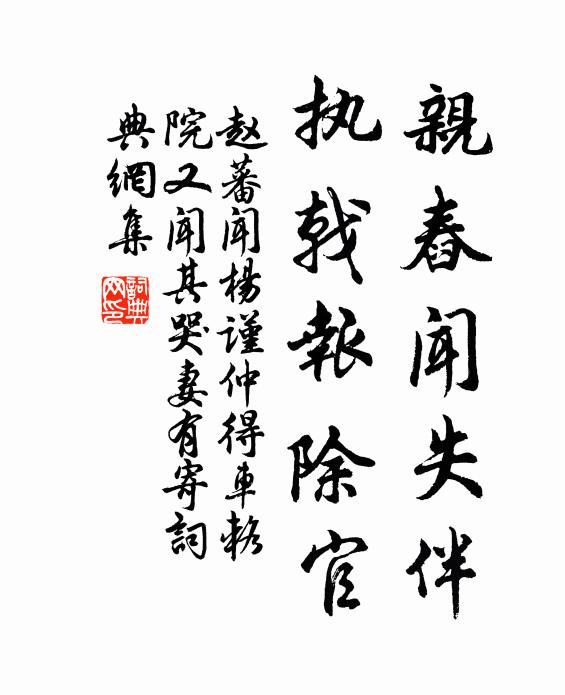 親舂闻失伴
执戟報除官
赵蕃闻楊谨仲得車輅
院又闻其哭妻有寄詞
典網集
詞典网印